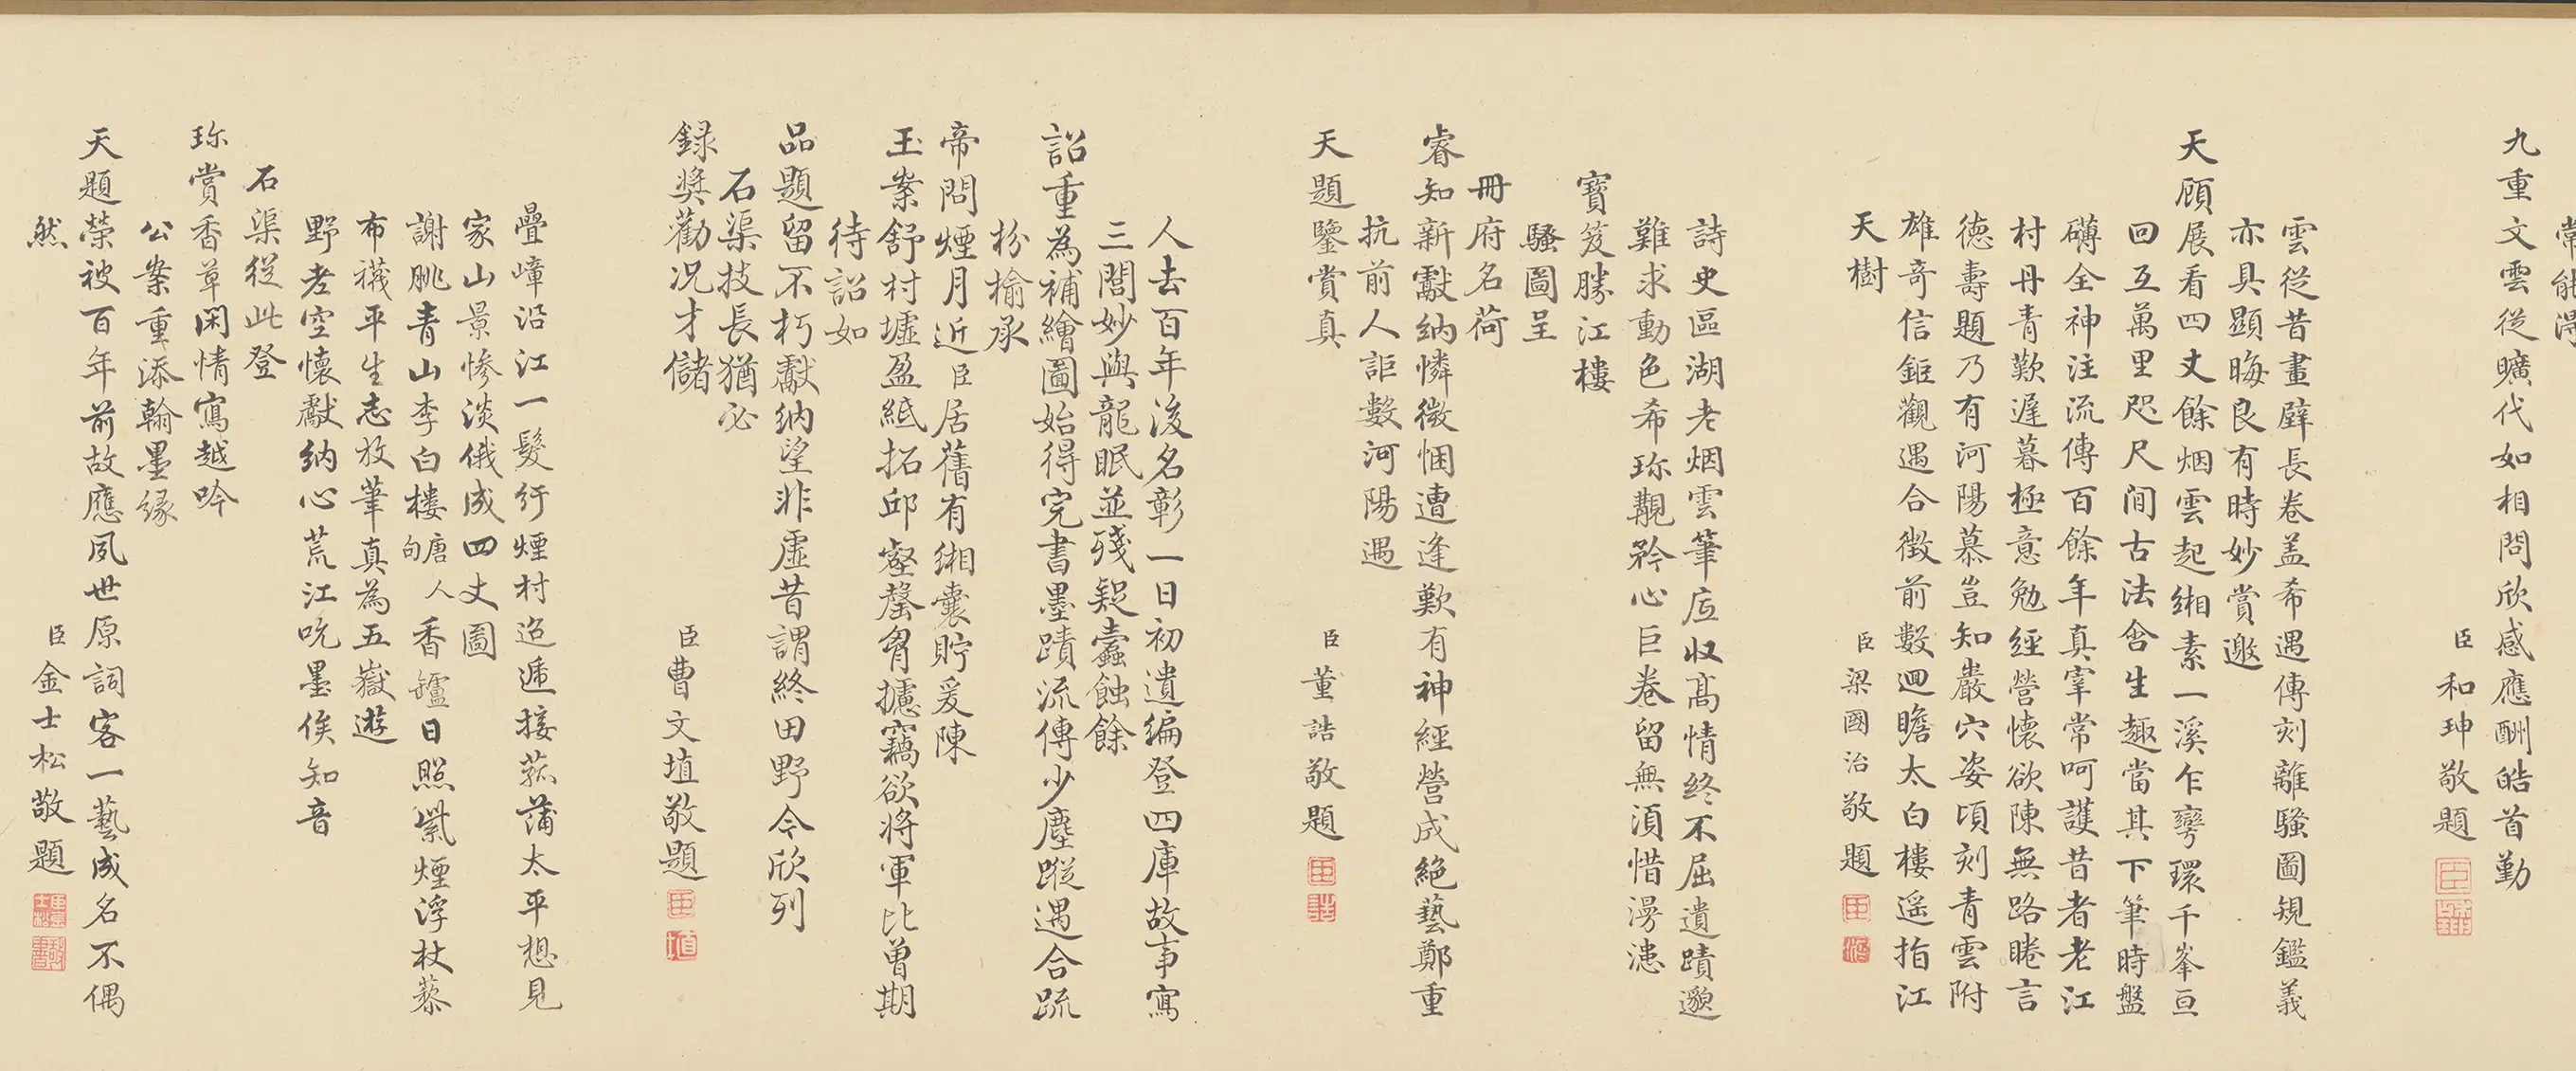 常能得
九重文雲從曠代如相問欣感應酬皓首勤
臣和珅敬題
雲從昔畫壁長卷盖希遇傳刻離騷圖規鑑義
亦具顯晦良有時妙賞邀
天顧展看四丈餘烟雲起緗素一溪乍彎環千峯亘
回互萬里咫尺間古法含生趣當其下筆時盤
礴全神注流傳百餘年真宰常呵護昔者老江
村丹青歎遲暮極意勉經營懷欲陳無路睠言
德壽題乃有河陽慕豈知巖穴姿頃刻青雲附
雄奇信鉅觀遇合徵前數迴瞻太白樓遥指江
天樹
臣梁國治敬題
詩史區湖老烟雲筆底収髙情終不屈遺蹟邈
難求動色希珎覯矜心巨卷留無湏惜漫漶
寶笈勝江樓
騷圖呈
冊府名荷
睿知新獻納憐微悃遭逢歎有神經營成絶藝鄭重
抗前人詎數河陽遇
天題鑒賞真
臣董誥敬題
人去百年後名彰一日初遺編登四庫故事寫
三閭妙與龍眠並殘疑蠹蝕餘
詔重為補繪圖始得完書墨蹟流傳少塵蹤遇合疏
枌榆承
帝問煙月近臣居舊有緗囊貯爰陳
玉案舒村墟盈紙拓邱壑罄胷攄竊欲將軍比曾期
待詔如
品題留不朽獻納望非虛昔謂終田野今欣列
石渠技長猶必
録奬勸况才儲
臣曹文埴敬題
疊嶂沿江一髮紆煙村迢遞接菰蒲太平想見
家山景慘淡俄成四丈圖
謝朓青山李白樓唐人句香鑪日照紫煙浮杖藜
布襪平生志放筆真為五嶽遊
野老空懷獻納心荒江吮墨俟知音
石渠從此登
珎賞香草閑情寫越吟
公案重添翰墨緣
天題榮被百年前故應夙世原詞客一藝成名不偶
然
臣金士松敬題